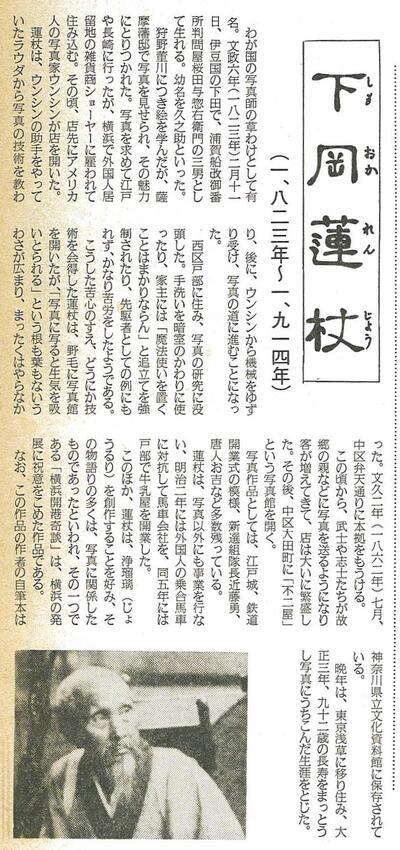 下岡蓮杖
しもおかれんじょう
(一、八二三年〜一、九一四年)
わが国の写真師の草わけとして有
名。文政六年(一八二三年)二月十一
日、伊豆国の下田で、浦賀船改御番
所判問屋桜田与惣右衛門の三男とし
て生れる。幼名を久之助といった。
狩野董川につき絵を学んだが、薩
摩藩邸で写真を見せられ、その魅力
にとりつかれた。写真を求めて江戸
や長崎に行ったが、横浜で外国人居
留地の雑貨商ショーヤーに雇われて
住み込む。その頃、店先にアメリカ
人の写真家ウンシンが店を開いた。
蓮杖は、ウンシンの助手をやって
いたラウダから写真の技術を教わ
り、後に、ウンシンから機械をゆず
り受け、写真の道に進むことになっ
た。
西区戸部に住み、写真の研究に没
頭した。手洗いを暗室のかわりに使
ったり、家主には「魔法使いを置く
ことはまかりならん」と追立てを強
制されたり、先駆者としての例にも
れず、かなり苦労をしたようである。
こうした苦心のすえ、どうにか技
術を会得した蓮杖は、野毛に写真館
を開いたが、「写真に写ると生気を吸
いとられる」という根も葉もないう
わさが広まり、まったくはやらなか
った。文久二年(一八六二年)七月、
中区弁天通りに本拠をもうける。
この頃から、武士や志士たちが故
郷の親などに写真を送るようになり
客が増えてきて、店は大いに繁盛し
た。その後、中区太田町に「不二屋」
という写真館を開く。
写真作品としては、江戸城、鉄道
開業式の模様、新選組隊長近藤勇、
唐人お吉など多数残っている。
蓮杖は、写真以外にも事業を行な
い、明治二年には外国人の乗合馬車
に対抗して馬車会社を、同五年には
戸部で牛乳屋を開業した。
このほか、蓮杖は、浄瑠璃(じょ
うるり)を創作することを好み、そ
の物語りの多くは、写真に関係した
ものであったといわれ、その一つで
ある「横浜開港奇談」は、横浜の発
展に祝意をこめた作品である。
なお、この作品の作者の自筆本は
神奈川県立文化資料館に保存されて
いる。
晩年は、東京浅草に移り住み、大
正三年、九十二歳の長寿をまっとう
し写真にうちこんだ生涯をとじた。